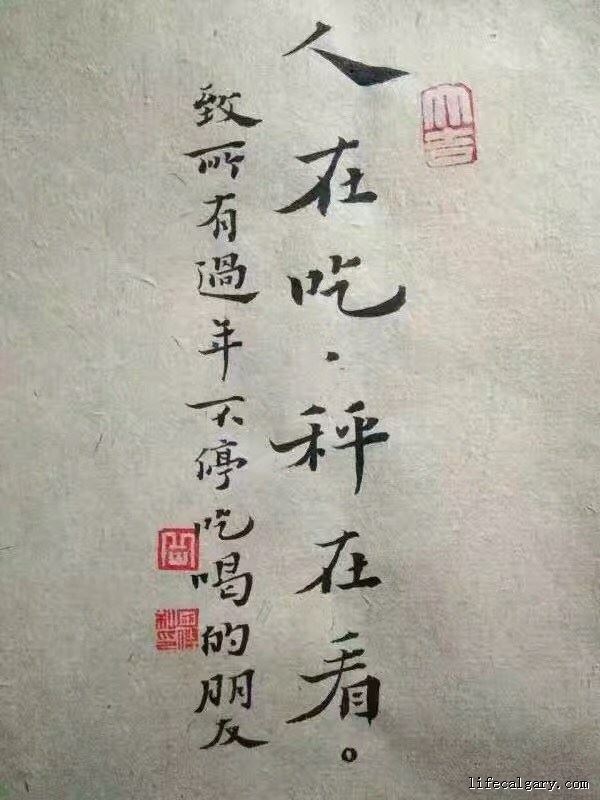 人在吃·秤在看。
致所有過年不停吃喝的朋友
大吉
lifecalgary.com